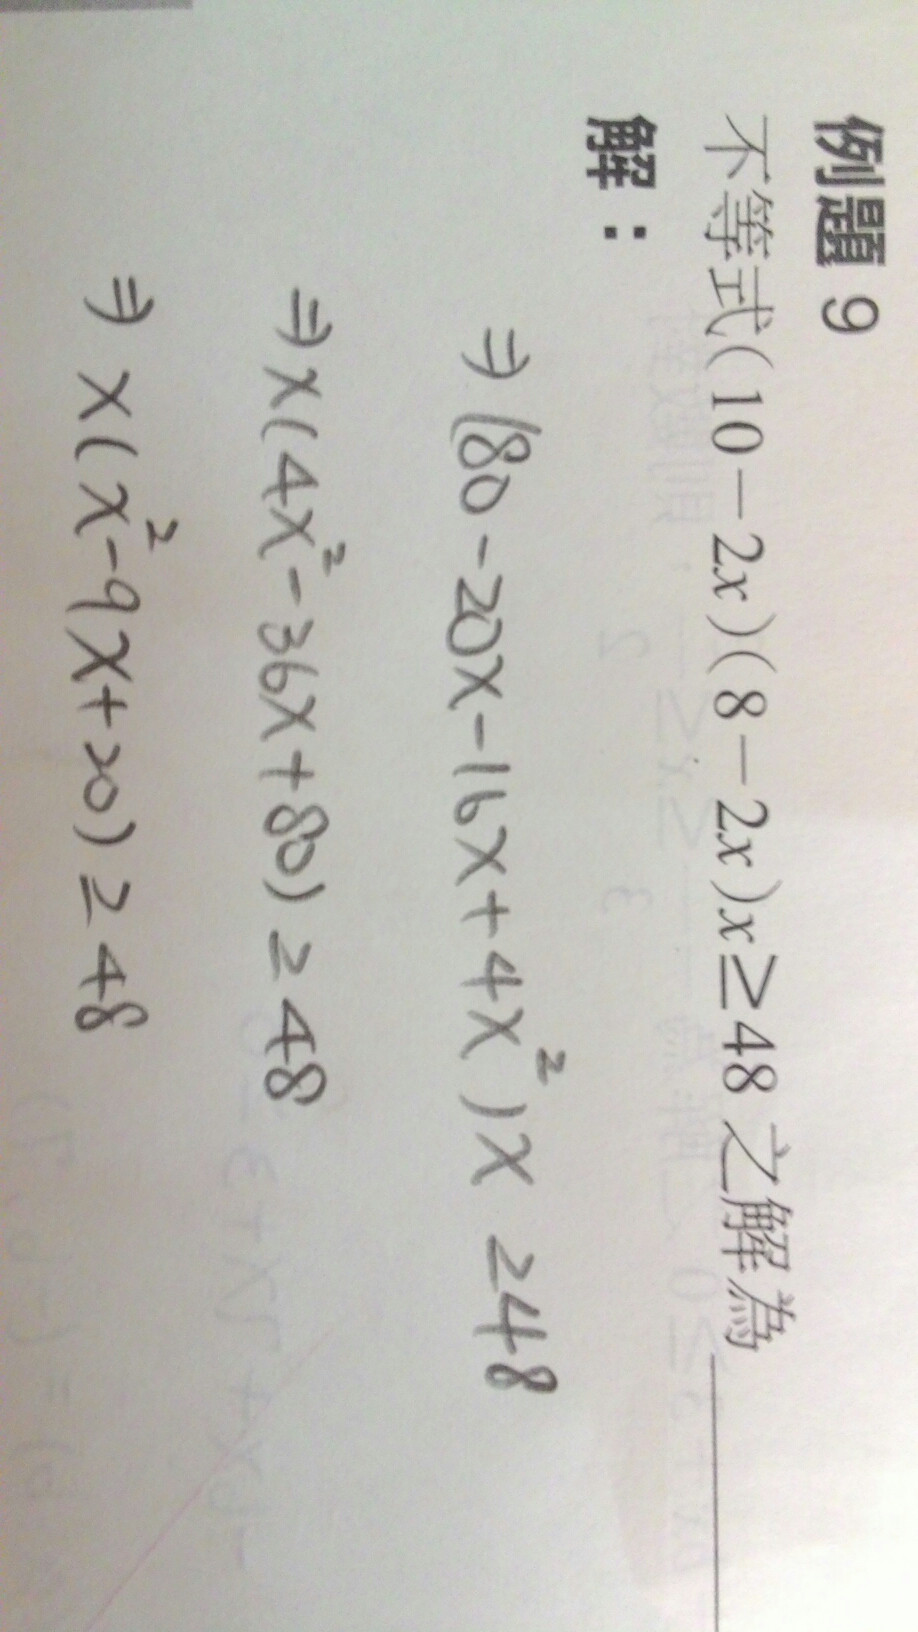 例題 9
不等式(10-2x)(8-2x)x≥48 之解為____
解：
⇒ (80-20x-16x+4x²)x ≥48
⇒ x(4x²-36x+80) ≥ 48
⇒ x(x²-9x+20) ≥ 48